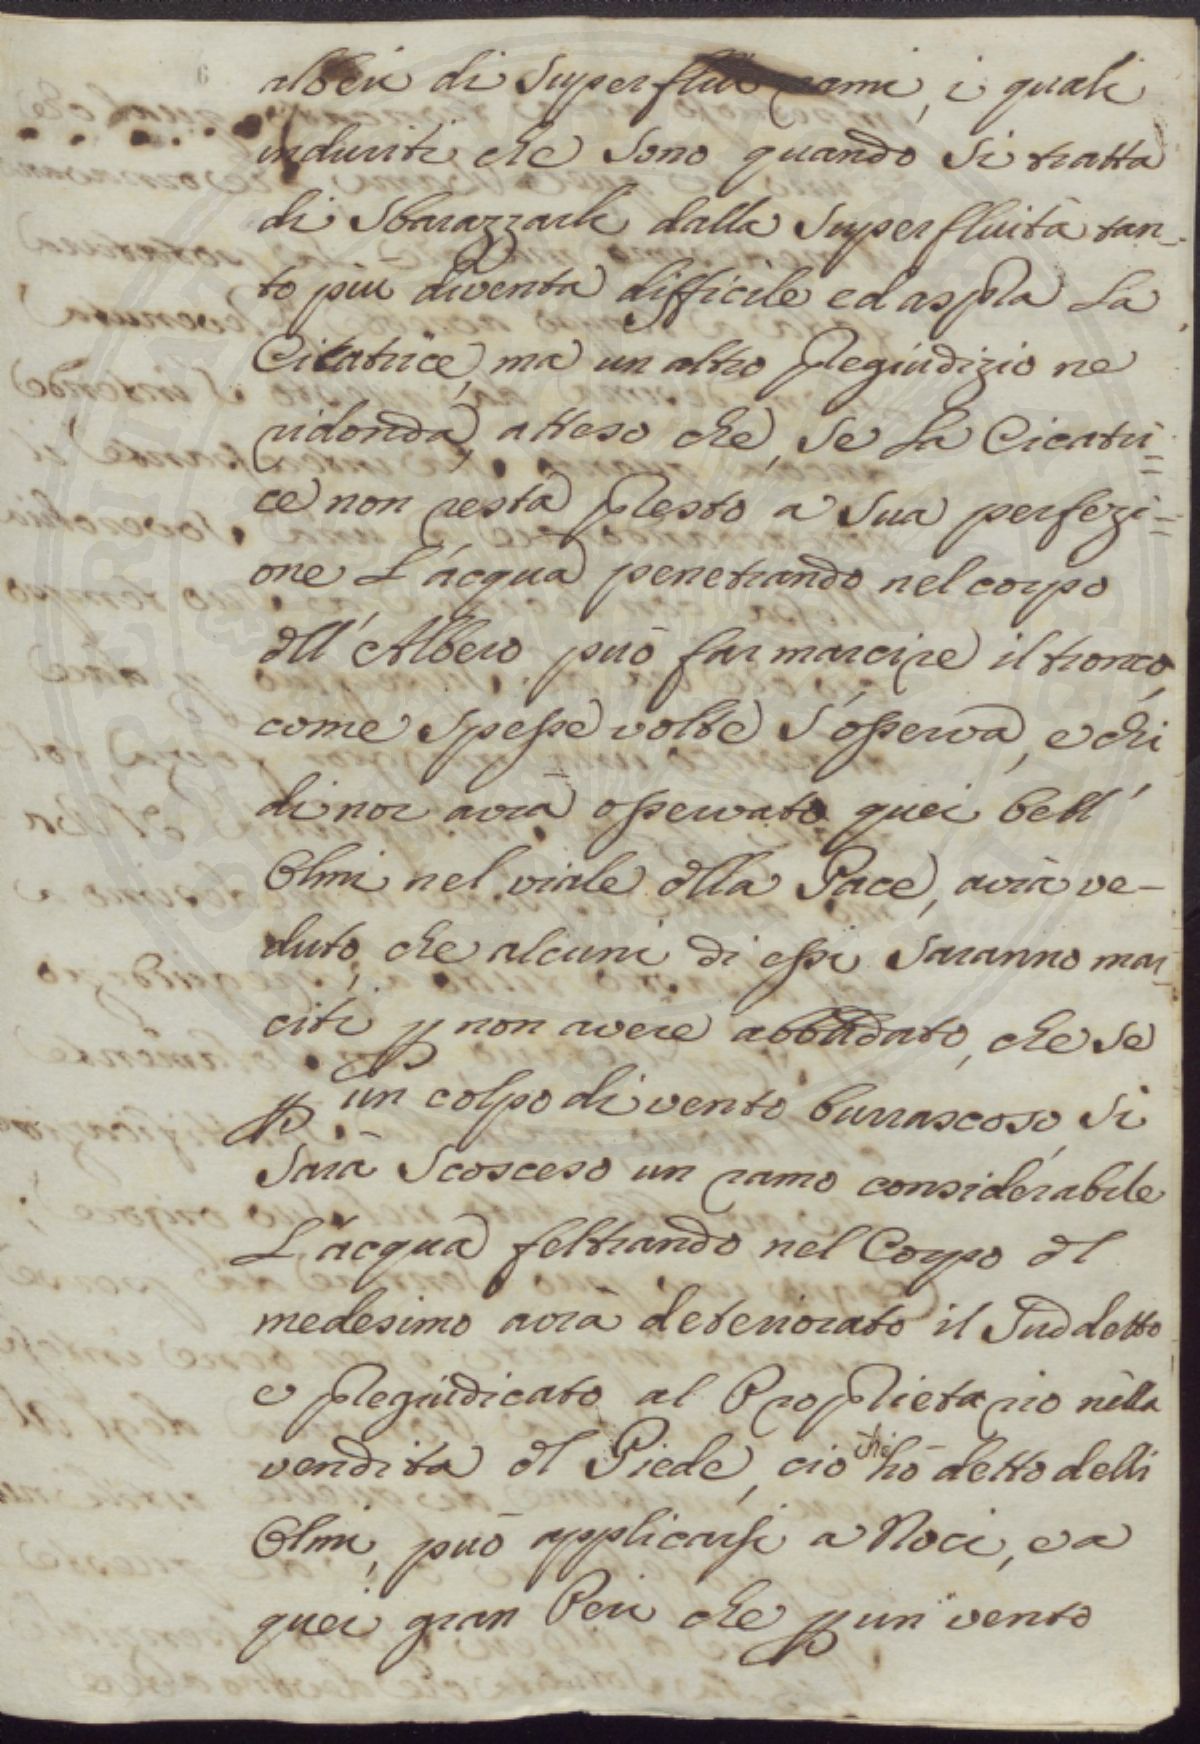 alberi di Superflui rami, i quali
induriti che sono quando si tratta
di Sbarazzarli dalla Superfluità tan-
to più diventa difficile ed aspra La
Cicatrice, ma un altro Pregiudizio ne
ridonda, atteso che, se La Cicatri=
ce non resta Presto a Sua perfezi=
one L'acqua penetrando nel corpo
dll' Albero può far marcire il tronco,
come Spesse volte S'osserva, e chi
di noi avrà osservato quei bell'
Olmi nel viale dlla Pace, avrà ve-
duto, che alcuni di essi Saranno mar-
citi p non avere abbadato, che se
p un colpo di vento burrascoso, Si
Sarà Scosceso un ramo considerabile
L'acqua feltrando nel Corpo dl
medesimo avrà deteriorato il Suddetto
e Pregiudicato al Proprietario nella
vendita dl Piede, ciò che hò detto delli
Olmi, può applicarsi a Noci, e a
quei gran Peri che p un vento